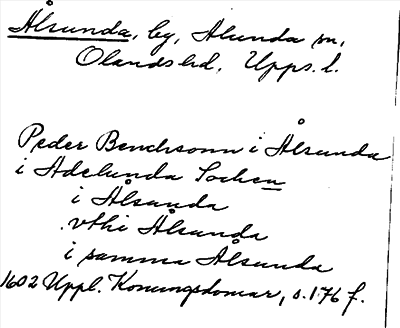 Ålsunda, by, Alunda sn,
Olands hd, Upps. l.
Peder Benchsonn i Ålsunda
i Adelunda Sochen
i Ålsunda
vthi Ålsunda
i samma Ålsunda
1602 Uppl. Konungsdomar, s. 176 f.